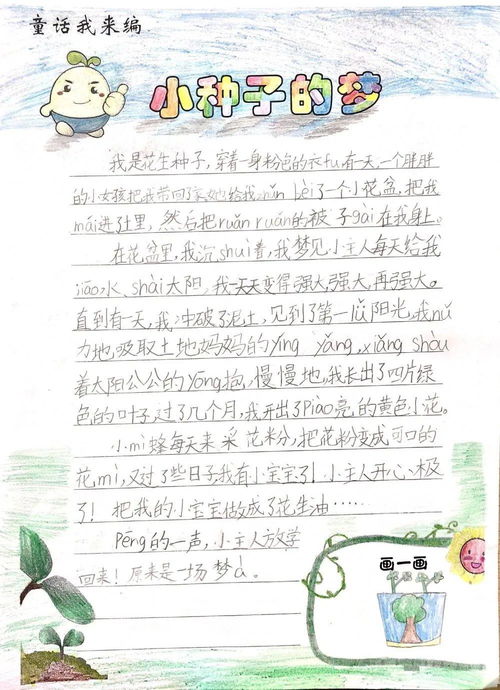 童话我来编
小种子的梦
我是花生种子,穿着一身粉色的衣fu,有一天,一个胖胖
的小女孩把我带回了家,她给我zhǔn bèi了一个小花盆,把我
mái进了土里,然后把ruǎn ruǎn的被子gài在我身上。
在花盆里,我沉shuì着,我梦见小主人每天给我
jiāo水、shài太阳,我一天天变得强大,强大,再强大。
直到有一天,我冲破了泥土,见到了第一lǚ阳光,我nǔ
力地,吸取土地妈妈的yíng yǎng,xiǎng shòu
着太阳公公的yōng抱,慢慢地,我长出了四片绿
色的叶子,过了几个月,我开出了Piào亮的黄色小花。
小mì蜂每天来采花粉,把花粉变成可口的
花mì,又过了些日子,我有小宝宝了!小主人开心极
了!把我的小宝宝做成了花生油……
Pēng的一声,小主人放学
回来!原来是一场梦à。
画一画